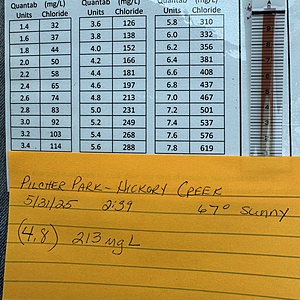 Quantab (mg/L) Quantab (mg/L) Quantab (mg/L)
Units Chloride Units Chloride Units Chloride
1.4 32 3.6 126 5.8 310
1.6 37 3.8 138 6.0 332
1.8 44 4.0 152 6.2 356
2.0 52 4.2 166 6.4 381
2.2 58 4.4 181 6.6 408
2.4 65 4.6 197 6.8 437
2.6 74 4.8 213 7.0 467
2.8 83 5.0 231 7.2 501
3.0 92 5.2 249 7.4 537
3.2 103 5.4 268 7.6 576
3.4 114 5.6 288 7.8 619
PILCHER PARK - HICKORY CREEK
5/31/25 2:39 67° SUNNY
(4.8) 213 mg L